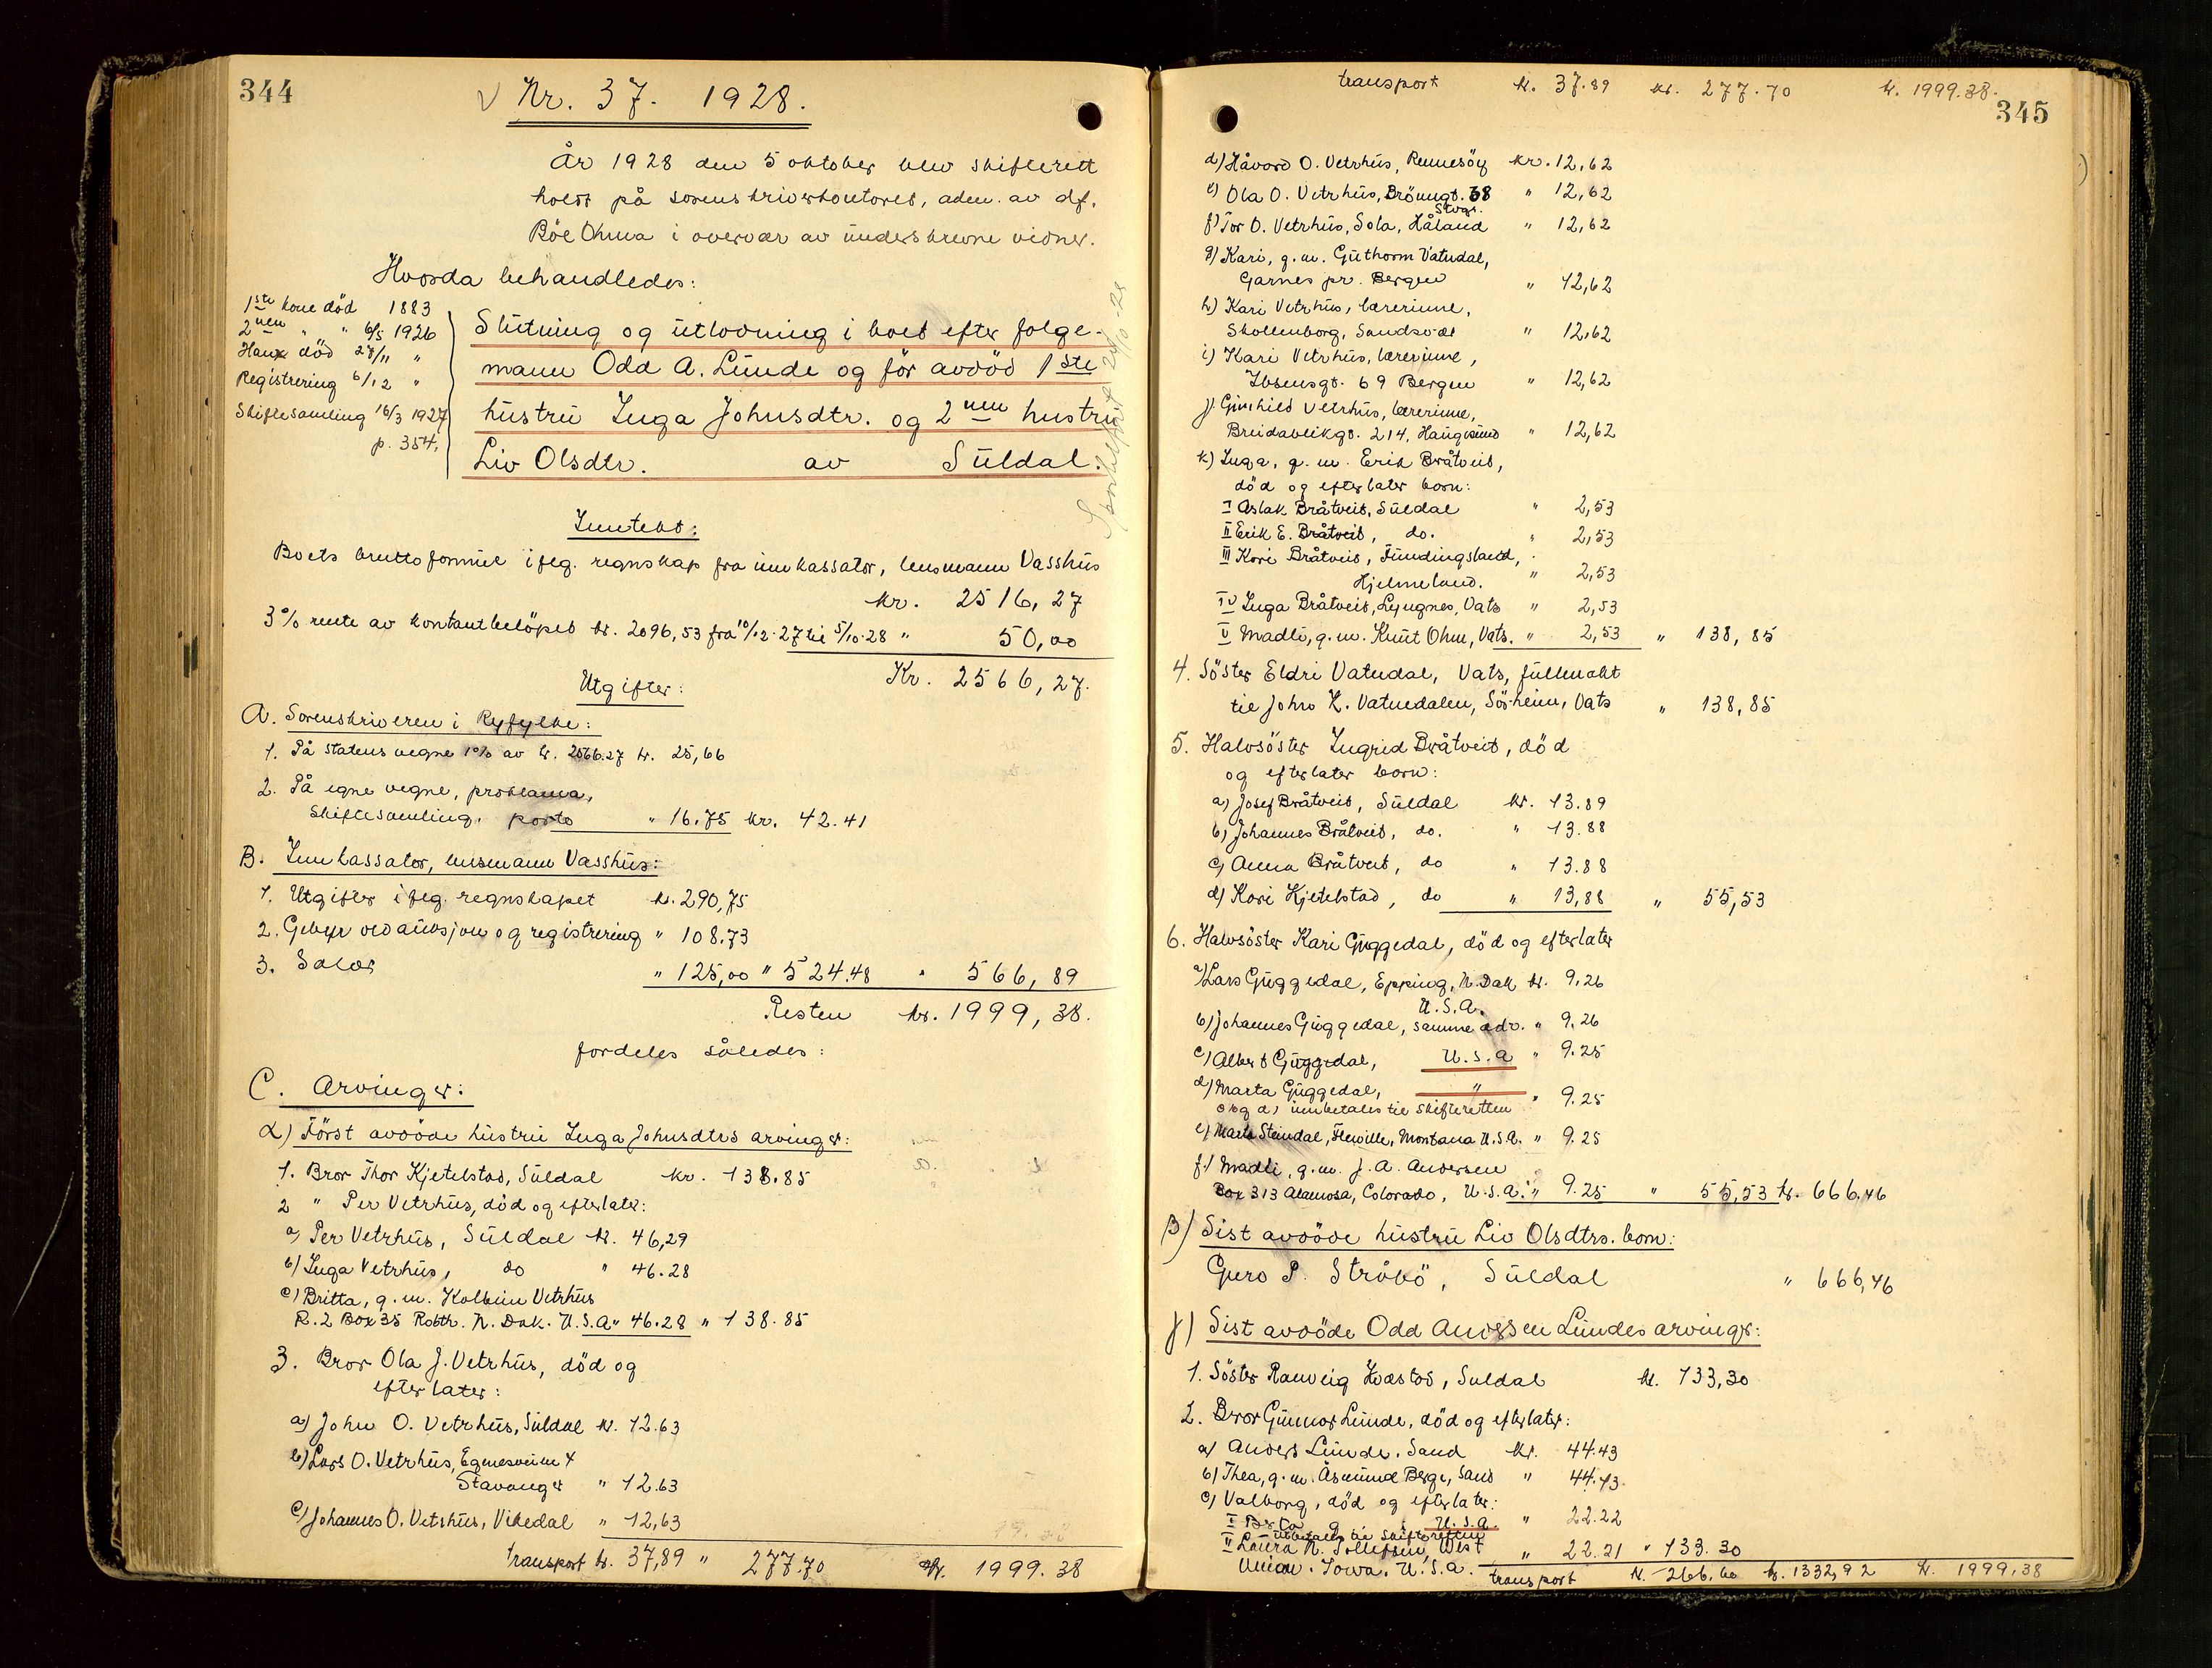 344
Nr. 37. 1928.
År 1928 den 5 oktober blev skifterett
holdt på sorenskriverkontoret, adm. av df.
Böe Ohma i overvær av underskrevne vidner.
Hvorda behandledes:
1ste kone död 1883
2nen " " 6/5 1926
Hank död 28/11 "
Registrering 6/12 "
Skiftesamling 16/3 1927
p. 354.
Slutning og utlodning i boet efter folge-
mann Odd A. Lunde og för avdöd 1ste
hustru Inga Johnsdtr. og 2nen hustru
Liv Olsdtr. av Suldal.
Inntekt:
Boets brutto formue iflg. regnskap fra innkassator, lensmann Vasshus
kr. 2516,27
3% rente av kontantbelöpet kr. 2096,53 fra 10/12-27 til 5/10-28 " 50,00
Kr. 2566,27.
Utgifter:
A. Sorenskriveren i Ryfylke:
1. På statens vegne 1% av kr. 2566.27 kr. 25,66
2. På egne vegne, proklama,
Skiftesamling, porto " 16.75 kr. 42.41
B. Innkassator, lensmann Vasshus:
1. Utgifter ifleg. regnskapet kr. 290,75
2. Gebyr ved auksjon og registrering " 108.73
3. Salær " 125,00 " 524.48 " 566,89
Resten kr. 1999,38.
fordeles således:
C. Arvinger:
α) Först avdöde hustru Inga Johnsdtrs arvinger:
1. Bror Thor Kjetelstad, Suldal kr. 138.85
2 " Per Vetrhus, död og efterlater:
a) Per Vetrhus, Suldal kr. 46,29
b) Inga Vetrhus, do " 46.28
c) Britta, g.m. Kolbein Vetrhus
R.2 Box 35 Robth. N. Dak. U.S.A " 46.28 " 138.85
3. Bror Ola J. Vetrhus, död og
efterlater:
a) John O. Vetrhus, Suldal kr. 12.63
b) Lars O. Vetrhus, Egnesveien 4
Stavanger " 12.63
c) Johannes O. Vetrhus, Vikedal " 12,63
transport kr. 37,89 " 277.70 kr. 1999.38
transport kr. 37.89 kr. 277.70 kr. 1999.38.
345
d) Håvard O. Vetrhus, Rennesöy kr. 12,62
e) Ola O. Vetrhus, Brönngt. 68 " 12,62
Stvgr.
f) Tor O. Vetrhus, Sola, Håland " 12,62
g) Kari, g.m. Guthorm Vatndal,
Garnes pr. Bergen " 12,62
h) Kari Vetrhus, lærerinne,
Skollenborg, Sandsvær " 12,62
i) Kari Vetrhus, lærerinne,
Ibsensgt. 69 Bergen " 12,62
j) Gunhild Vetrhus, lærerinne,
Breidablikgt. 214, Haugesund " 12,62
k) Inga, g.m. Erik Bråtveit,
död og efterlater born:
I Aslak Bråtveit, Suldal " 2,53
II Erik E. Bråtveit, do. " 2,53
III Kari Bråtveit, Fundingsland,
Hjelmeland. " 2,53
IV Inga Bråtveit, Lyngnes, Vats " 2,53
V Madli, g.m. Knut Ohm, Vats. " 2,53 " 138,85
4. Söster Eldri Vatndal, Vats, fullmakt
til John K. Vatnedalen, Sörheim, Vats " 138,85
5. Halvsöster Ingrid Bråtveit, död
og efterlater born:
a) Josef Bråtveit, Suldal kr. 13.89
b) Johannes Bråtveit, do. " 13.88
c) Anna Bråtveit, do " 13.88
d) Kari Kjetelstad, do " 13,88 " 55,53
6. Halvsöster Kari Guggedal, död og efterlater
a) Lars Guggedal, Epping, N. Dak kr. 9.26
U.S.A.
b) Johannes Guggedal, samme adr. " 9.26
c) Albert Guggedal, U.S.A " 9.25
d) Marta Guggedal, " " 9.25
c og d) innbetales til skifteretten
e) Marta Steindal, Flewille, Montana U.S.A. " 9.25
f) Madli, g.m. J.A. Andersen
Box 313 Alamosa, Colorado, U.S.A. " 9.25 " 55,53 kr. 666,46
β) Sist avdöde hustru Liv Olsdtrs. born:
Guro P. Stråbö, Suldal " 666,46
γ) Sist avdöde Odd Anderssen Lundes arvinger:
1. Söster Ranveig Kvæstad, Suldal kr. 133,30
2. Bror Gunnar Lunde, död og efterlater:
a) Anders Lunde, Sand kr. 44.43
b) Thea, g.m. Åsmund Berge, Sand " 44.43.
c) Valborg, död og efterlater:
I U.S.A. " 22.22
innbetales til skifteretten
II Laura N. Tollefsen, West
Union, Iowa, U.S.A. " 22.21 " 133.30
transport kr. 266,60 kr. 1332,92 kr. 1999,38